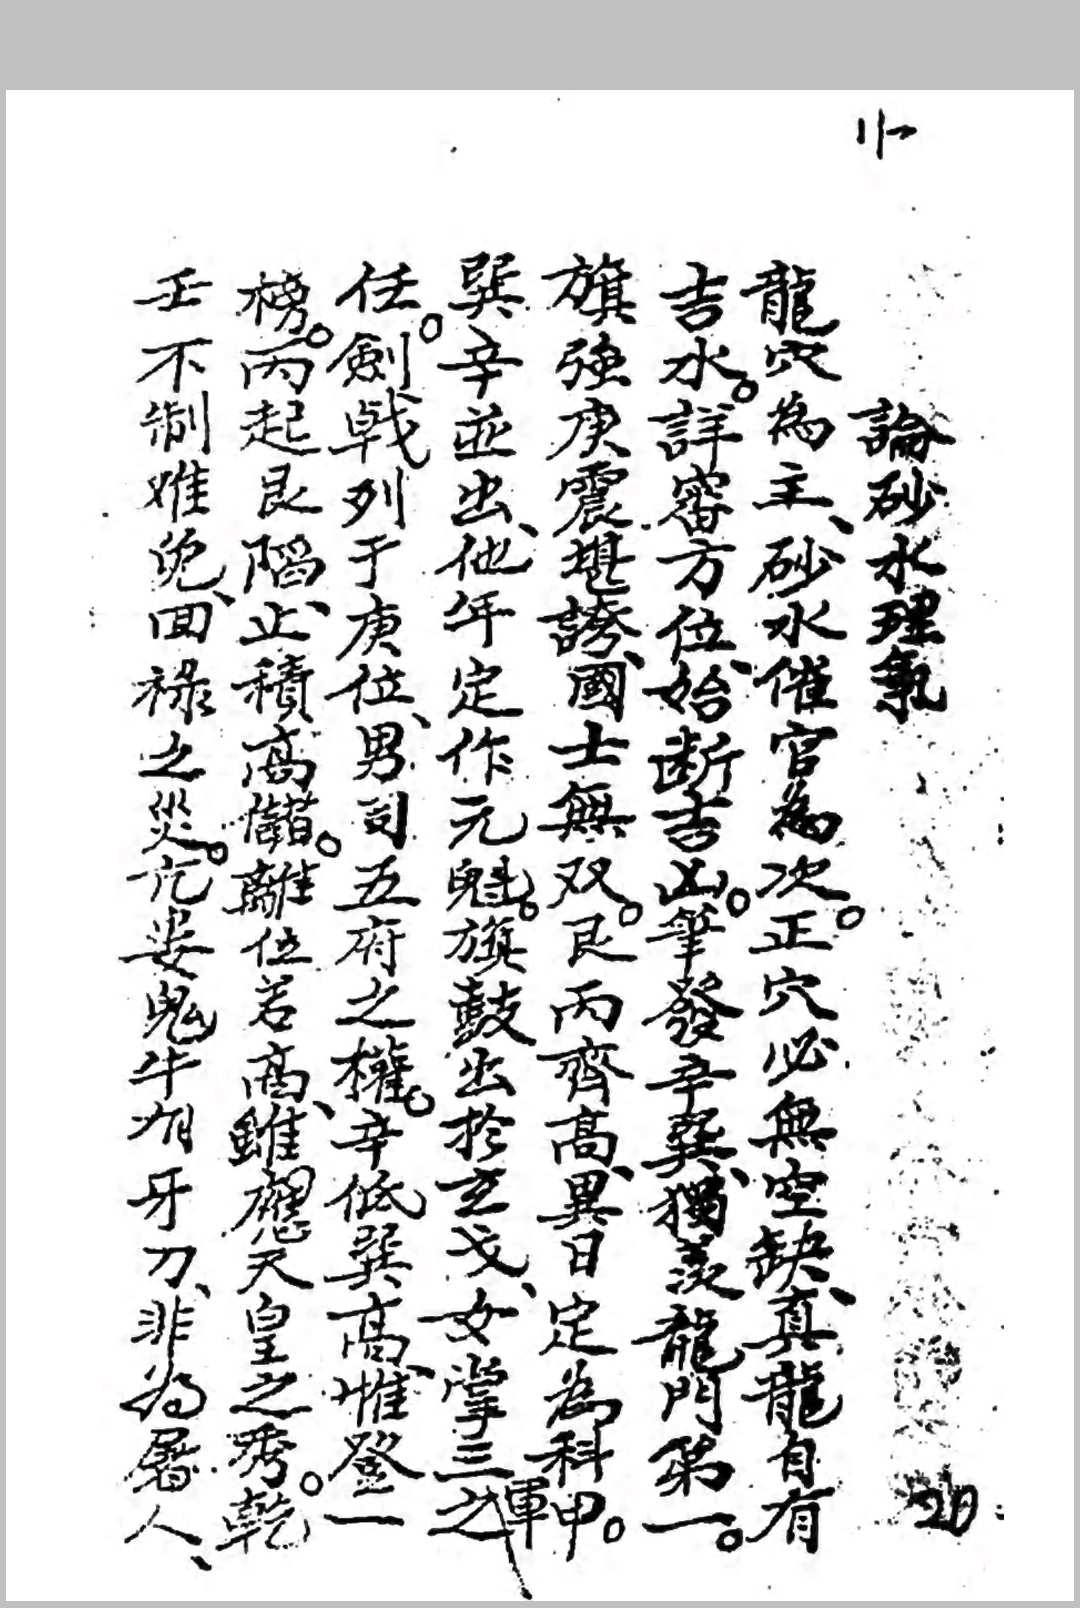 論砂水理氣
龍穴為主、砂水催官為次。正穴必無空缺、真龍自有
吉水。詳審方位、始断吉凶。筆發辛巽、獨羨龍門第一。
旗強庚震堪誇、國士無双。艮丙齊高、異日定為科甲。
巽辛並出、他年定作元魁。旗鼓出於玄戈、女掌三軍之
任。劍戟列于庚位、男司五府之權。辛低巽高、惟登一
榜。丙起艮陷、止積高儲。離位若高、雖應天皇之秀。乾
壬不制难免、回祿之災。亢婁鬼牛有牙刀、非為屠人、
20